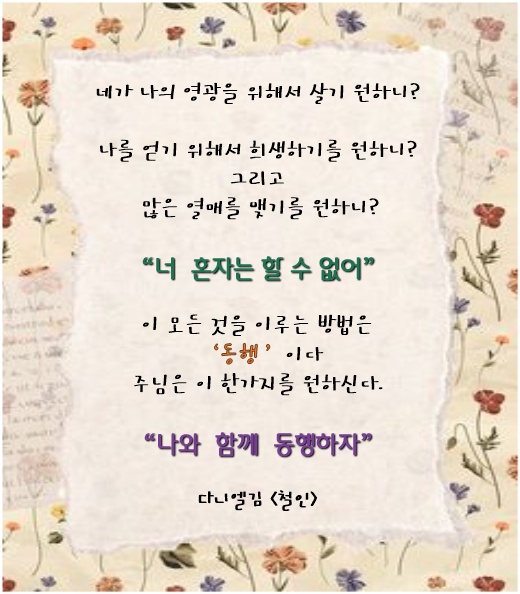 네가 나의 영광을 위해서 살기 원하니?
나를 얻기 위해서 희생하기를 원하니?
그리고
많은 열매를 맺기를 원하니?
“너 혼자는 할 수 없어”
이 모든 것을 이루는 방법은
‘동행’ 이다
주님은 이 한가지를 원하신다.
“나와 함께 동행하자”
다니엘김 <철인>